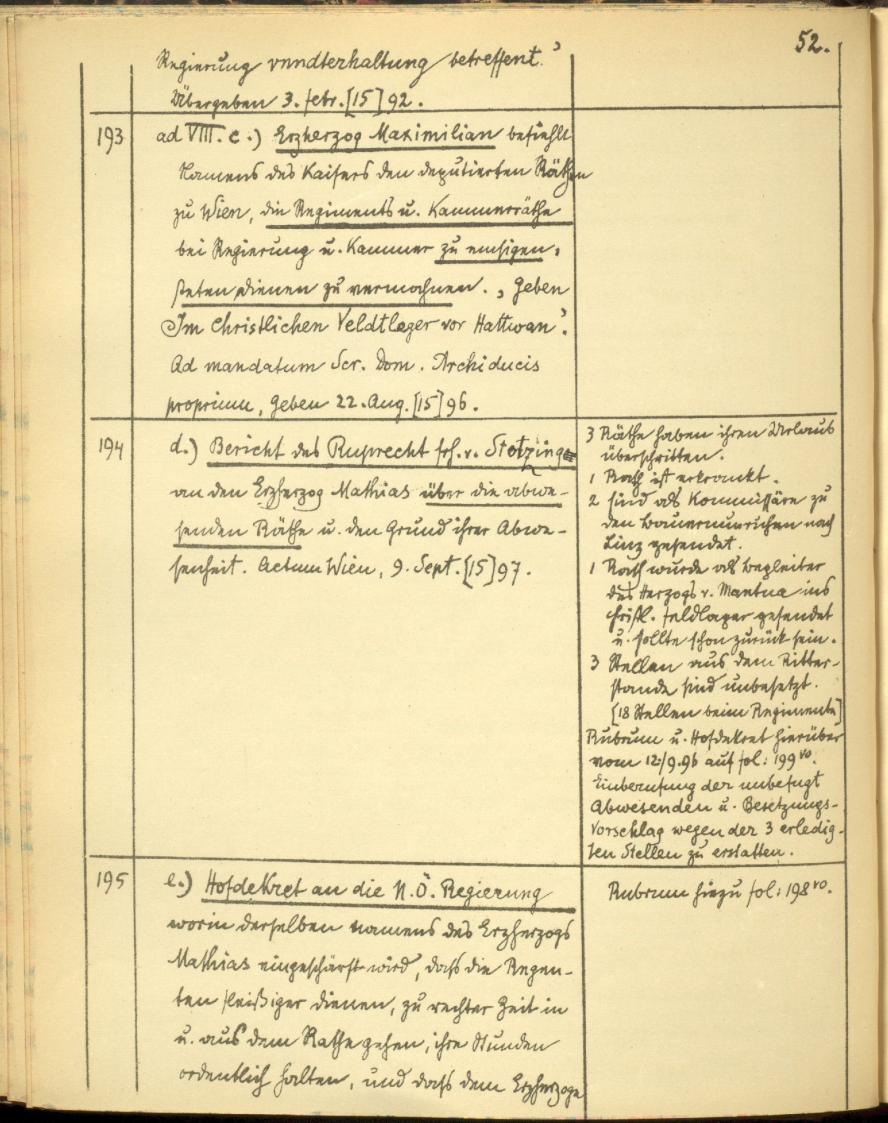 52.
Regierung vnndterhaltung betreffent."
Übergeben 3. febr. [15]92.
193
ad VIII. c.) Erzherzog Maximilian befiehlt
Namens des Kaisers den deputierten Räthen
zu Wien, die Regiments u. Kammerräthe
bei Regierung u. Kammer zu emsigen,
steten dienen zu vermachnen. „Geben
Im christlichen Veldtleger vor Hattwan".
Ad mandatum Ser. Dom. Archiducis
proprium, geben 22. Aug. [15]96.
194
d.) Bericht des Ruprecht frh. v. Stotzinge
an den Erzherzog Mathias über die abwe-
senden Räthe u. den Grund ihrer Abwe-
senheit. Actum Wien, 9. Sept. [15]97.
3 Räthe haben ihren Urlaub
überschritten.
1 Rath ist erkrankt.
2 sind als Kommissäre zu
den Bauernunruhen nach
Linz gesendet.
1 Rath wurde als Begleiter
des Herzogs v. Mantua ins
christl. Feldlager gesendet
u. sollte schon zurück sein.
3 Stellen aus dem Ritter-
stande sind unbesetzt.
[18 Stellen beim Regimente]
Rubrum u. Hofdekret hierüber
vom 12/9.96 auf fol: 199 vo.
Einberufung der unbefugt
Abwesenden u. Besetzungs-
vorschlag wegen der 3 erledig-
ten Stellen zu erstatten.
195
e.) Hofdekret an die N.Ö. Regierung
worin derselben namens des Erzherzogs
Mathias eingeschärft wird, dass die Regen-
ten fleißiger dienen, zu rechter Zeit in
u. aus dem Rathe gehen, ihre Stunden
ordentlich halten, und dass dem Erzherzoge
Rubrum hiezu fol: 198 vo.